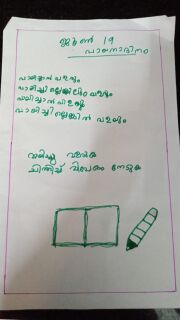 ജൂൺ 19
വായനാദിനം
വായിച്ചാൽ വളരും
വായിച്ചില്ലെങ്കിലും വളരും
വായിച്ചാൽ വിളയും
വായിച്ചില്ലെങ്കിൽ വളയും
വായിച്ചു വളരുക
ചിന്തിച്ച് വിവേകം നേടുക